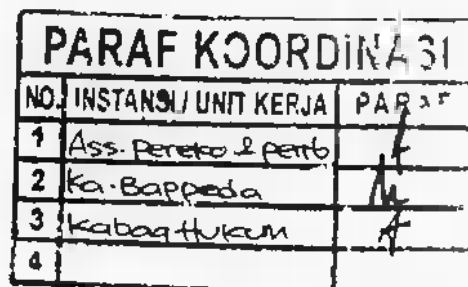 PARAF KOORDINASI
NO. INSTANSI / UNIT KERJA PARAF
1 Ass. Pereko & pemb
2 Ka. Bappeda
3 Kabag Hukum
4